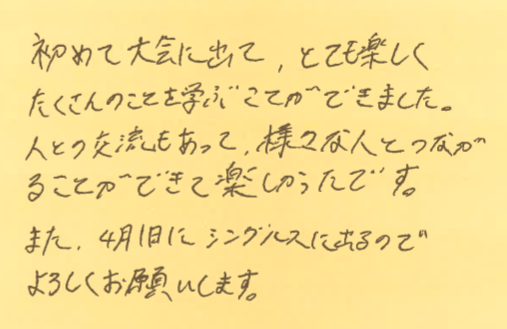 初めて大会に出て、とても楽しく
たくさんのことを学ぶことができました。
人との交流もあって、様々な人とつなが
ることができて楽しかったです。
また、4月1日にシングルスに出るので
よろしくお願いします。